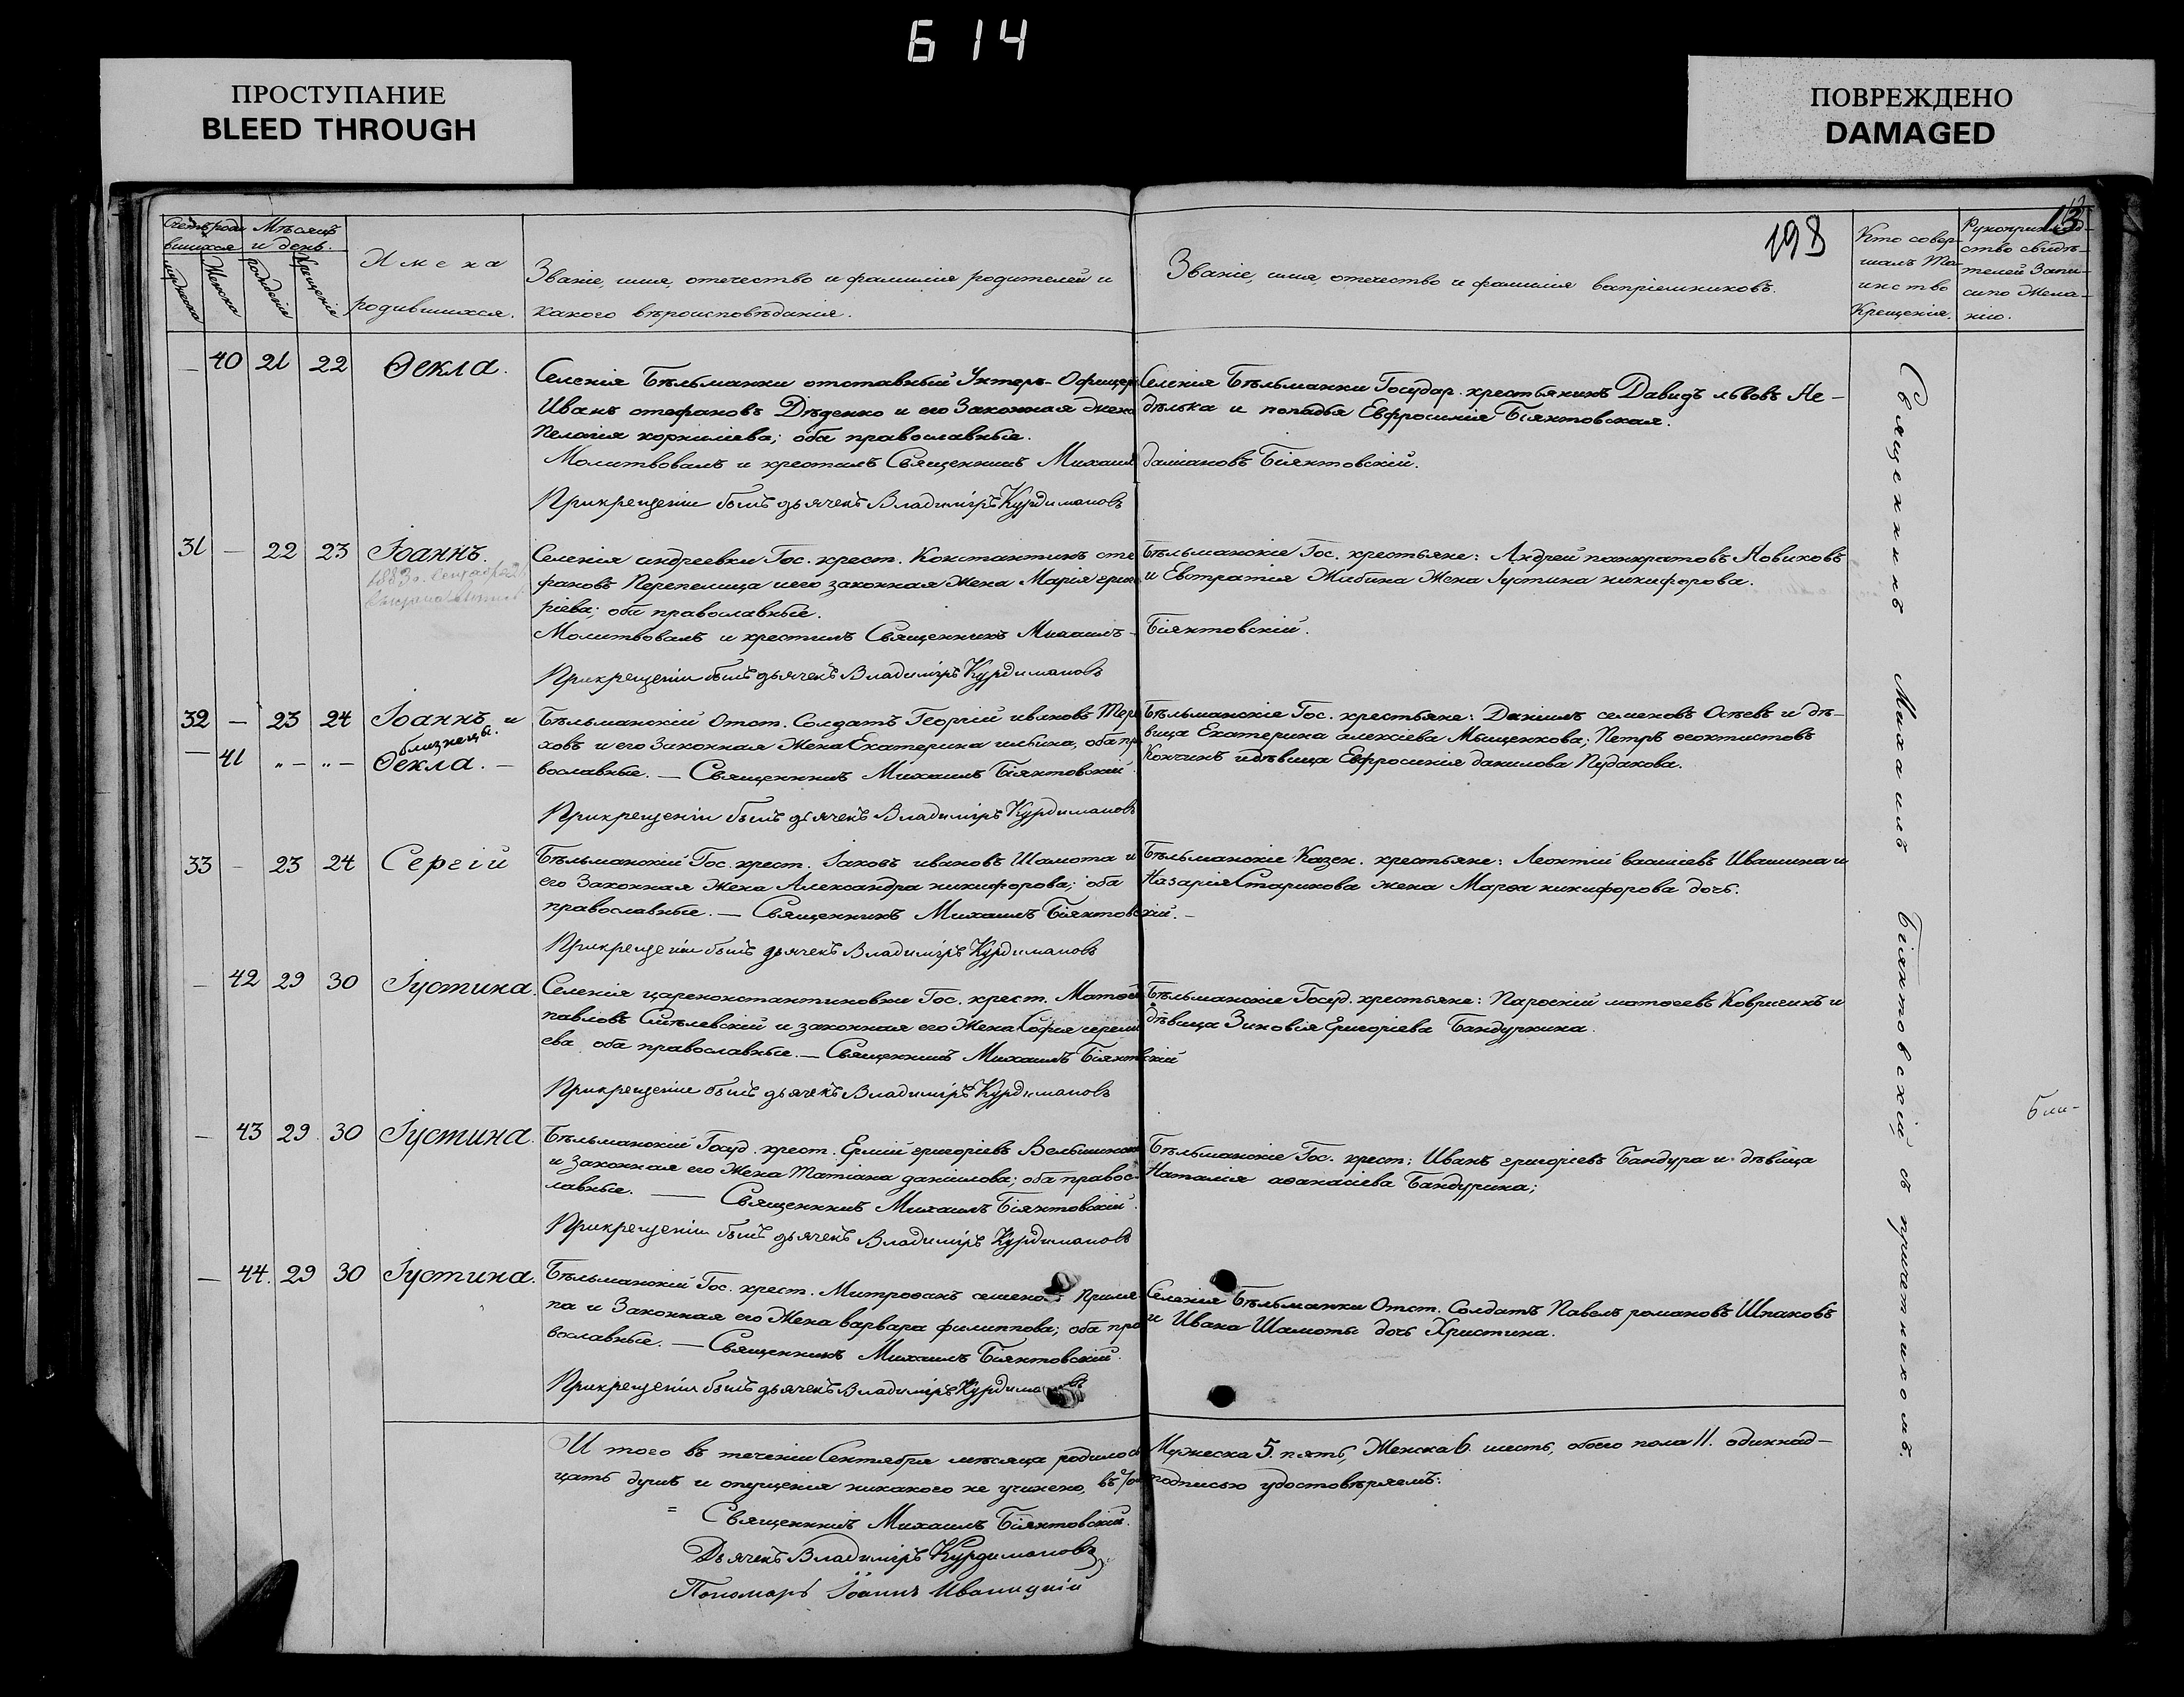 614
ПРОСТУПАНИЕ
BLEED THROUGH
ПОВРЕЖДЕНО
DAMAGED
198
13
Счетъ роди Мѣсяцъ
вшихся и день.
Мужеска Женска рожденія Крещенія
Имена
родившихся.
Званіе, имя, отечество и фамилія родителей и
какого вѣроисповѣданія.
Званіе, имя, отечество и фамилія вапріемниковъ.
Кто совер-
шалъ Та-
инство
Крещенія.
ство свидѣ-
телей Запи-
си по Жела-
нію.
— 40 21 22 Ѳекла.
Селенія Бѣльманки отставный Унтеръ-Офицеръ
Иванъ стефановъ Дѣденко и его Законная жена
Пелагія корнилиева; оба православные.
Молитвовалъ и крестилъ Священникъ Михаилъ даміановъ Біянтовскій.
Прикрещеніи былъ дьячекъ Владиміръ Курдимановъ
Селенія Бѣльманки Государ. крестьянинъ Давидъ львовъ Не-
дѣлька и попадья Евфросинія Біянтовская.
31 — 22 23 Іоаннъ.
Селенія андреевки Гос. крест. Константинъ сте
фановъ Перепелица и его законная Жена Марія григо
ріева; оба православные.
Молитвовалъ и крестилъ Священникъ Михаилъ — Біянтовскій.
Прикрещеніи былъ дьячекъ Владиміръ Курдимановъ
Бѣльманскіе Гос. крестьяне: Андрей панкратовъ Новиковъ
и Евстратія Жибина Жена Іустина никифорова.
32 — 23 24 Іоаннъ и
близнецы.
— 41 „ — „ — Ѳекла. —
Бѣльманскій Отст. Солдатъ Георгій ивановъ Тере
ховъ и его Законная Жена Екатерина ильина, оба пра
вославные. — Священникъ Михаилъ Біянтовскій.
Прикрещеніи былъ дьячекъ Владиміръ Курдимановъ
Бѣльманскіе Гос. крестьяне: Даніилъ семеновъ Осѣевъ и дѣ-
вица Екатерина алексіева Мищенкова; Петръ ѳеоктистовъ
Кончинъ и дѣвица Евфросинія данилова Пудакова.
33 — 23 24 Сергій
Бѣльманскій Гос. крест. Іаковъ ивановъ Шамота и
его Законная Жена Александра никифорова; оба
православные. — Священникъ Михаилъ Біянтовскій. —
Прикрещеніи былъ дьячекъ Владиміръ Курдимановъ
Бѣльманскіе Казен. крестьяне: Леонтій василіевъ Ивашина и
Назарія Старикова жена Марѳа никифорова дочь.
— 42 29 30 Іустина.
Селенія цареконстантиновки Гос. крест. Матѳей
павловъ Смѣлевскій и законная его Жена Софія иеремі
ева оба православные. — Священникъ Михаилъ Біянтовскій
Прикрещеніи былъ дьячекъ Владиміръ Курдимановъ
Бѣльманскіе Госуд. крестьяне: Парѳеній матѳеевъ Ковригинъ и
дѣвица Зиновія Григоріева Бандуркина.
— 43 29 30 Іустина.
Бѣльманскій Госуд. крест. Ермій григоріевъ
и Законная его Жена Татіана даніилова; оба правос-
лавные. — Священникъ Михаилъ Біянтовскій.
Прикрещеніи былъ дьячекъ Владиміръ Курдимановъ
Бѣльманскіе Гос. крест: Иванъ григоріевъ Бандура и дѣвица
Наталія аѳанасіева Бандурина;
— 44. 29 30 Іустина.
Бѣльманскій Гос. крест. Митрофанъ семеновъ Приле
па и Законная его Жена варвара филиппова; оба пра
вославные. — Священникъ Михаилъ Біянтовскій.
Прикрещеніи былъ дьячекъ Владиміръ Курдимановъ
Селенія Бѣльманки Отст. Солдатъ Павелъ романовъ Шпаковъ
и Ивана Шамоты дочь Христина.
Священникъ Михаилъ Біянтовскій съ причетникомъ.
И того въ теченіи Сентября мѣсяца родилось Мужеска 5. пять, Женска 6. шесть, обоего пола 11. одиннад-
цать душъ и опущенія никакого не учинено, въ подписью удостовѣряемъ:
Священникъ Михаилъ Біянтовскій.
Дьячекъ Владиміръ Курдимановъ
Пономарь Іоаннъ Иваницкій